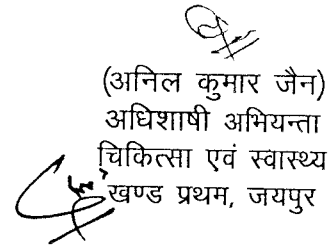 (अनिल कुमार जैन)
अधिशाषी अभियन्ता
चिकित्सा एवं स्वास्थ्य
खण्ड प्रथम, जयपुर